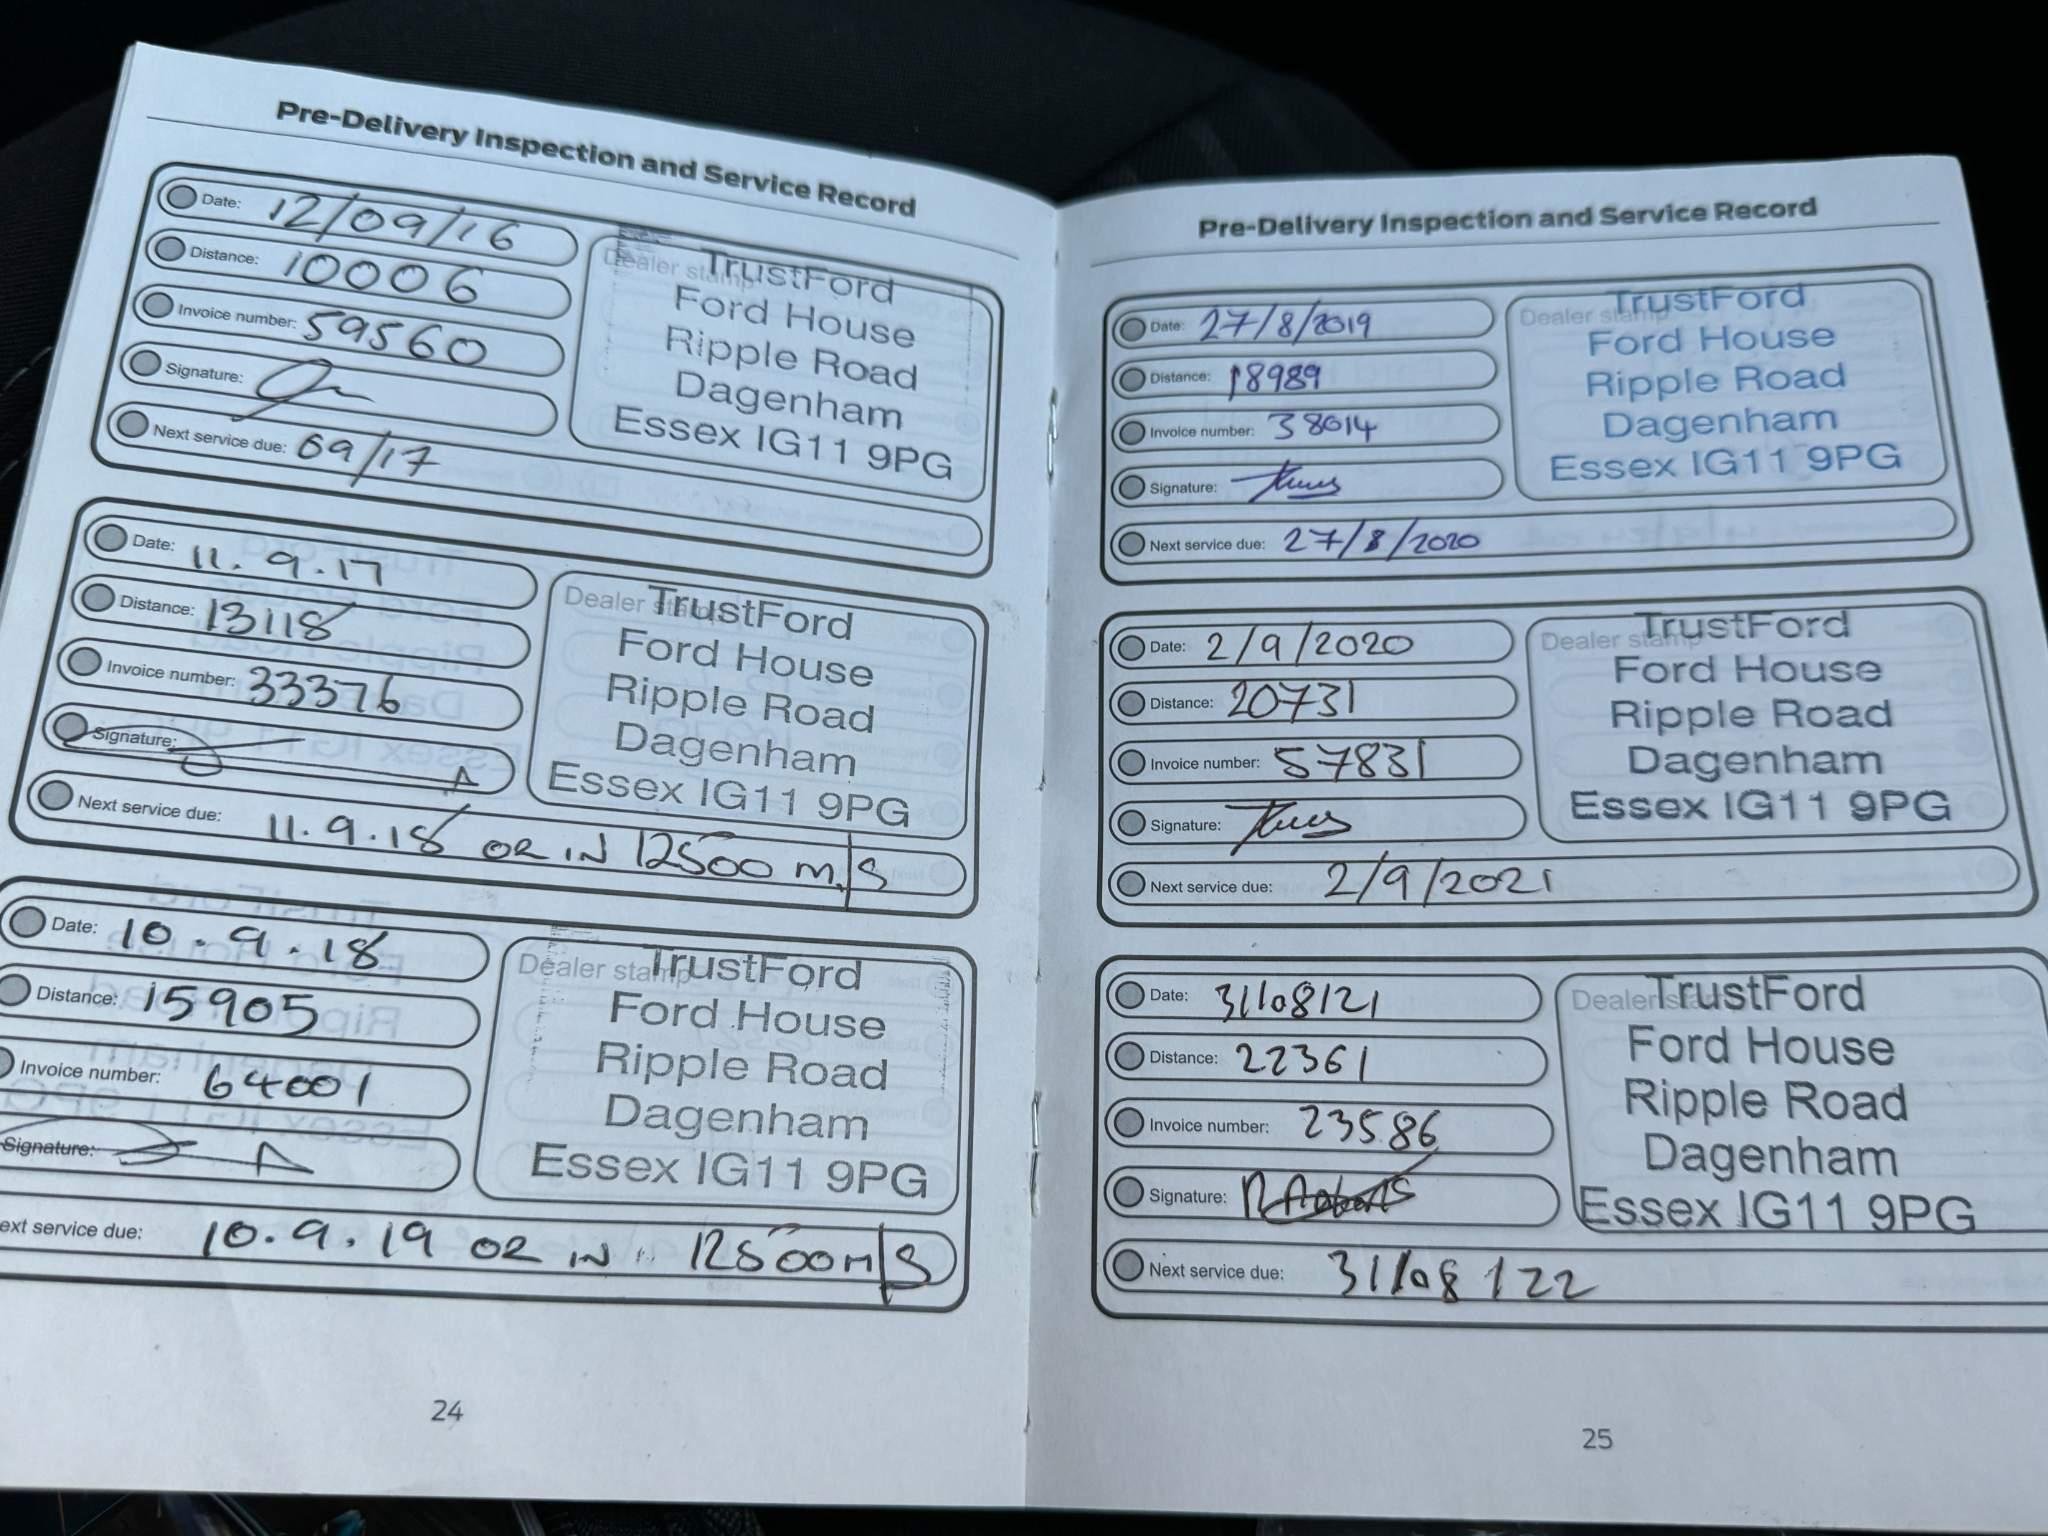 Pre-Delivery Inspection and Service Record
Date: 12/09/16
Distance: 10006
Invoice number: 59560
Signature:
Next service due: 09/17
Dealer stamp
TrustFord
Ford House
Ripple Road
Dagenham
Essex IG11 9PG
Date: 11.9.17
Distance: 13118
Invoice number: 33376
Signature:
Next service due: 11.9.18 OR IN 12500 m/s
Dealer stamp
TrustFord
Ford House
Ripple Road
Dagenham
Essex IG11 9PG
Date: 10.9.18
Distance: 15905
Invoice number: 64001
Signature:
ext service due: 10.9.19 OR IN 12500 m/s
Dealer stamp
TrustFord
Ford House
Ripple Road
Dagenham
Essex IG11 9PG
24
Pre-Delivery Inspection and Service Record
Date: 27/8/2019
Distance: 18989
Invoice number: 38014
Signature:
Next service due: 27/8/2020
Dealer stamp
TrustFord
Ford House
Ripple Road
Dagenham
Essex IG11 9PG
Date: 2/9/2020
Distance: 20731
Invoice number: 57831
Signature:
Next service due: 2/9/2021
Dealer stamp
TrustFord
Ford House
Ripple Road
Dagenham
Essex IG11 9PG
Date: 31/08/21
Distance: 22361
Invoice number: 23586
Signature:
Next service due: 31/08/22
Dealer stamp
TrustFord
Ford House
Ripple Road
Dagenham
Essex IG11 9PG
25